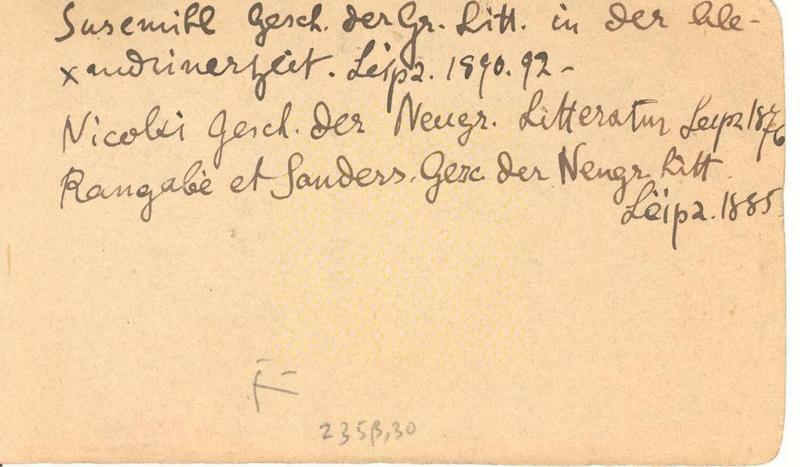 Susemihl Gesch. der Gr. Litt. in der Ale-
xandrinerzeit. Leipz. 1890.92-
Nicolai Gesch. der Neugr. Litteratur Leipz 1876
Rangabé et Sanders. Gesc. der Neugr. Litt.
Leipz. 1885
F
235β,30